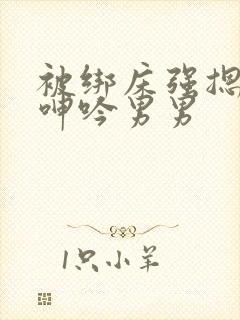 被绑床强摁
呻吟男男
1只小羊